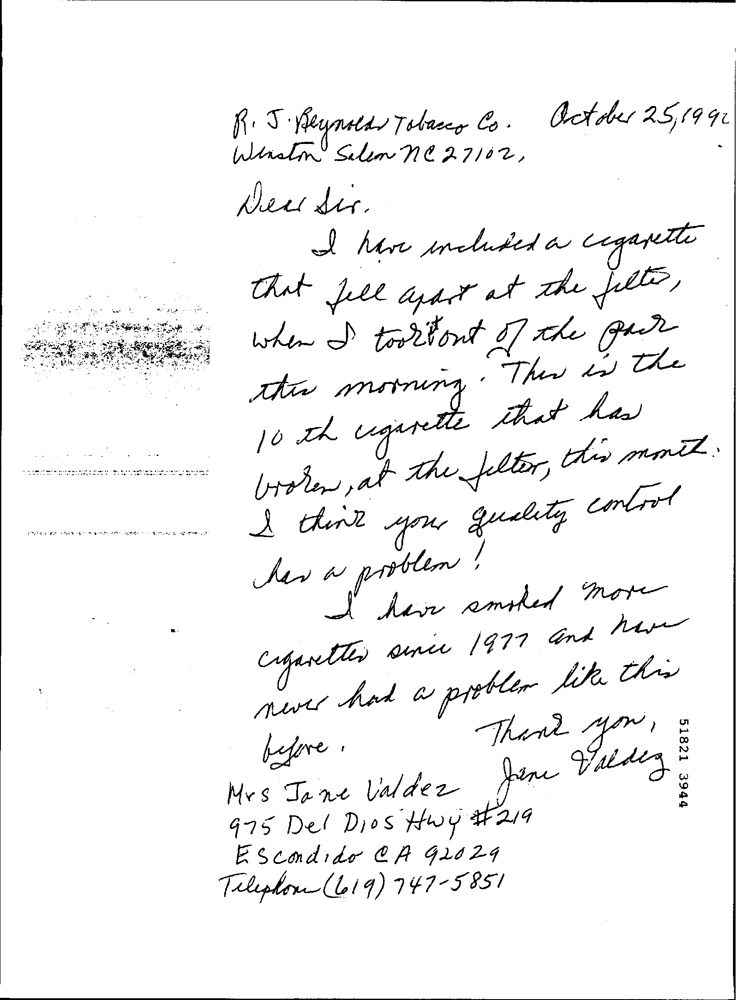 R. J. Reynolds Tobacco Co. October 25, 1992
Winston Salem NC 27102,
Dear Sir.
I have included a cigarette
that fell apart at the filter,
when I took it out of the pack
this morning. This is the
10 th cigarette that has
broken, at the filter, this month.
I think your quality control
has a problem!
I have smoked more
cigarettes since 1977 and have
never had a problem like this
before. Thank you,
Jane Valdez
Mrs Jane Valdez
975 Del Dios Hwy #219
Escondido CA 92029
Telephone (619) 747-5851
51821 3944